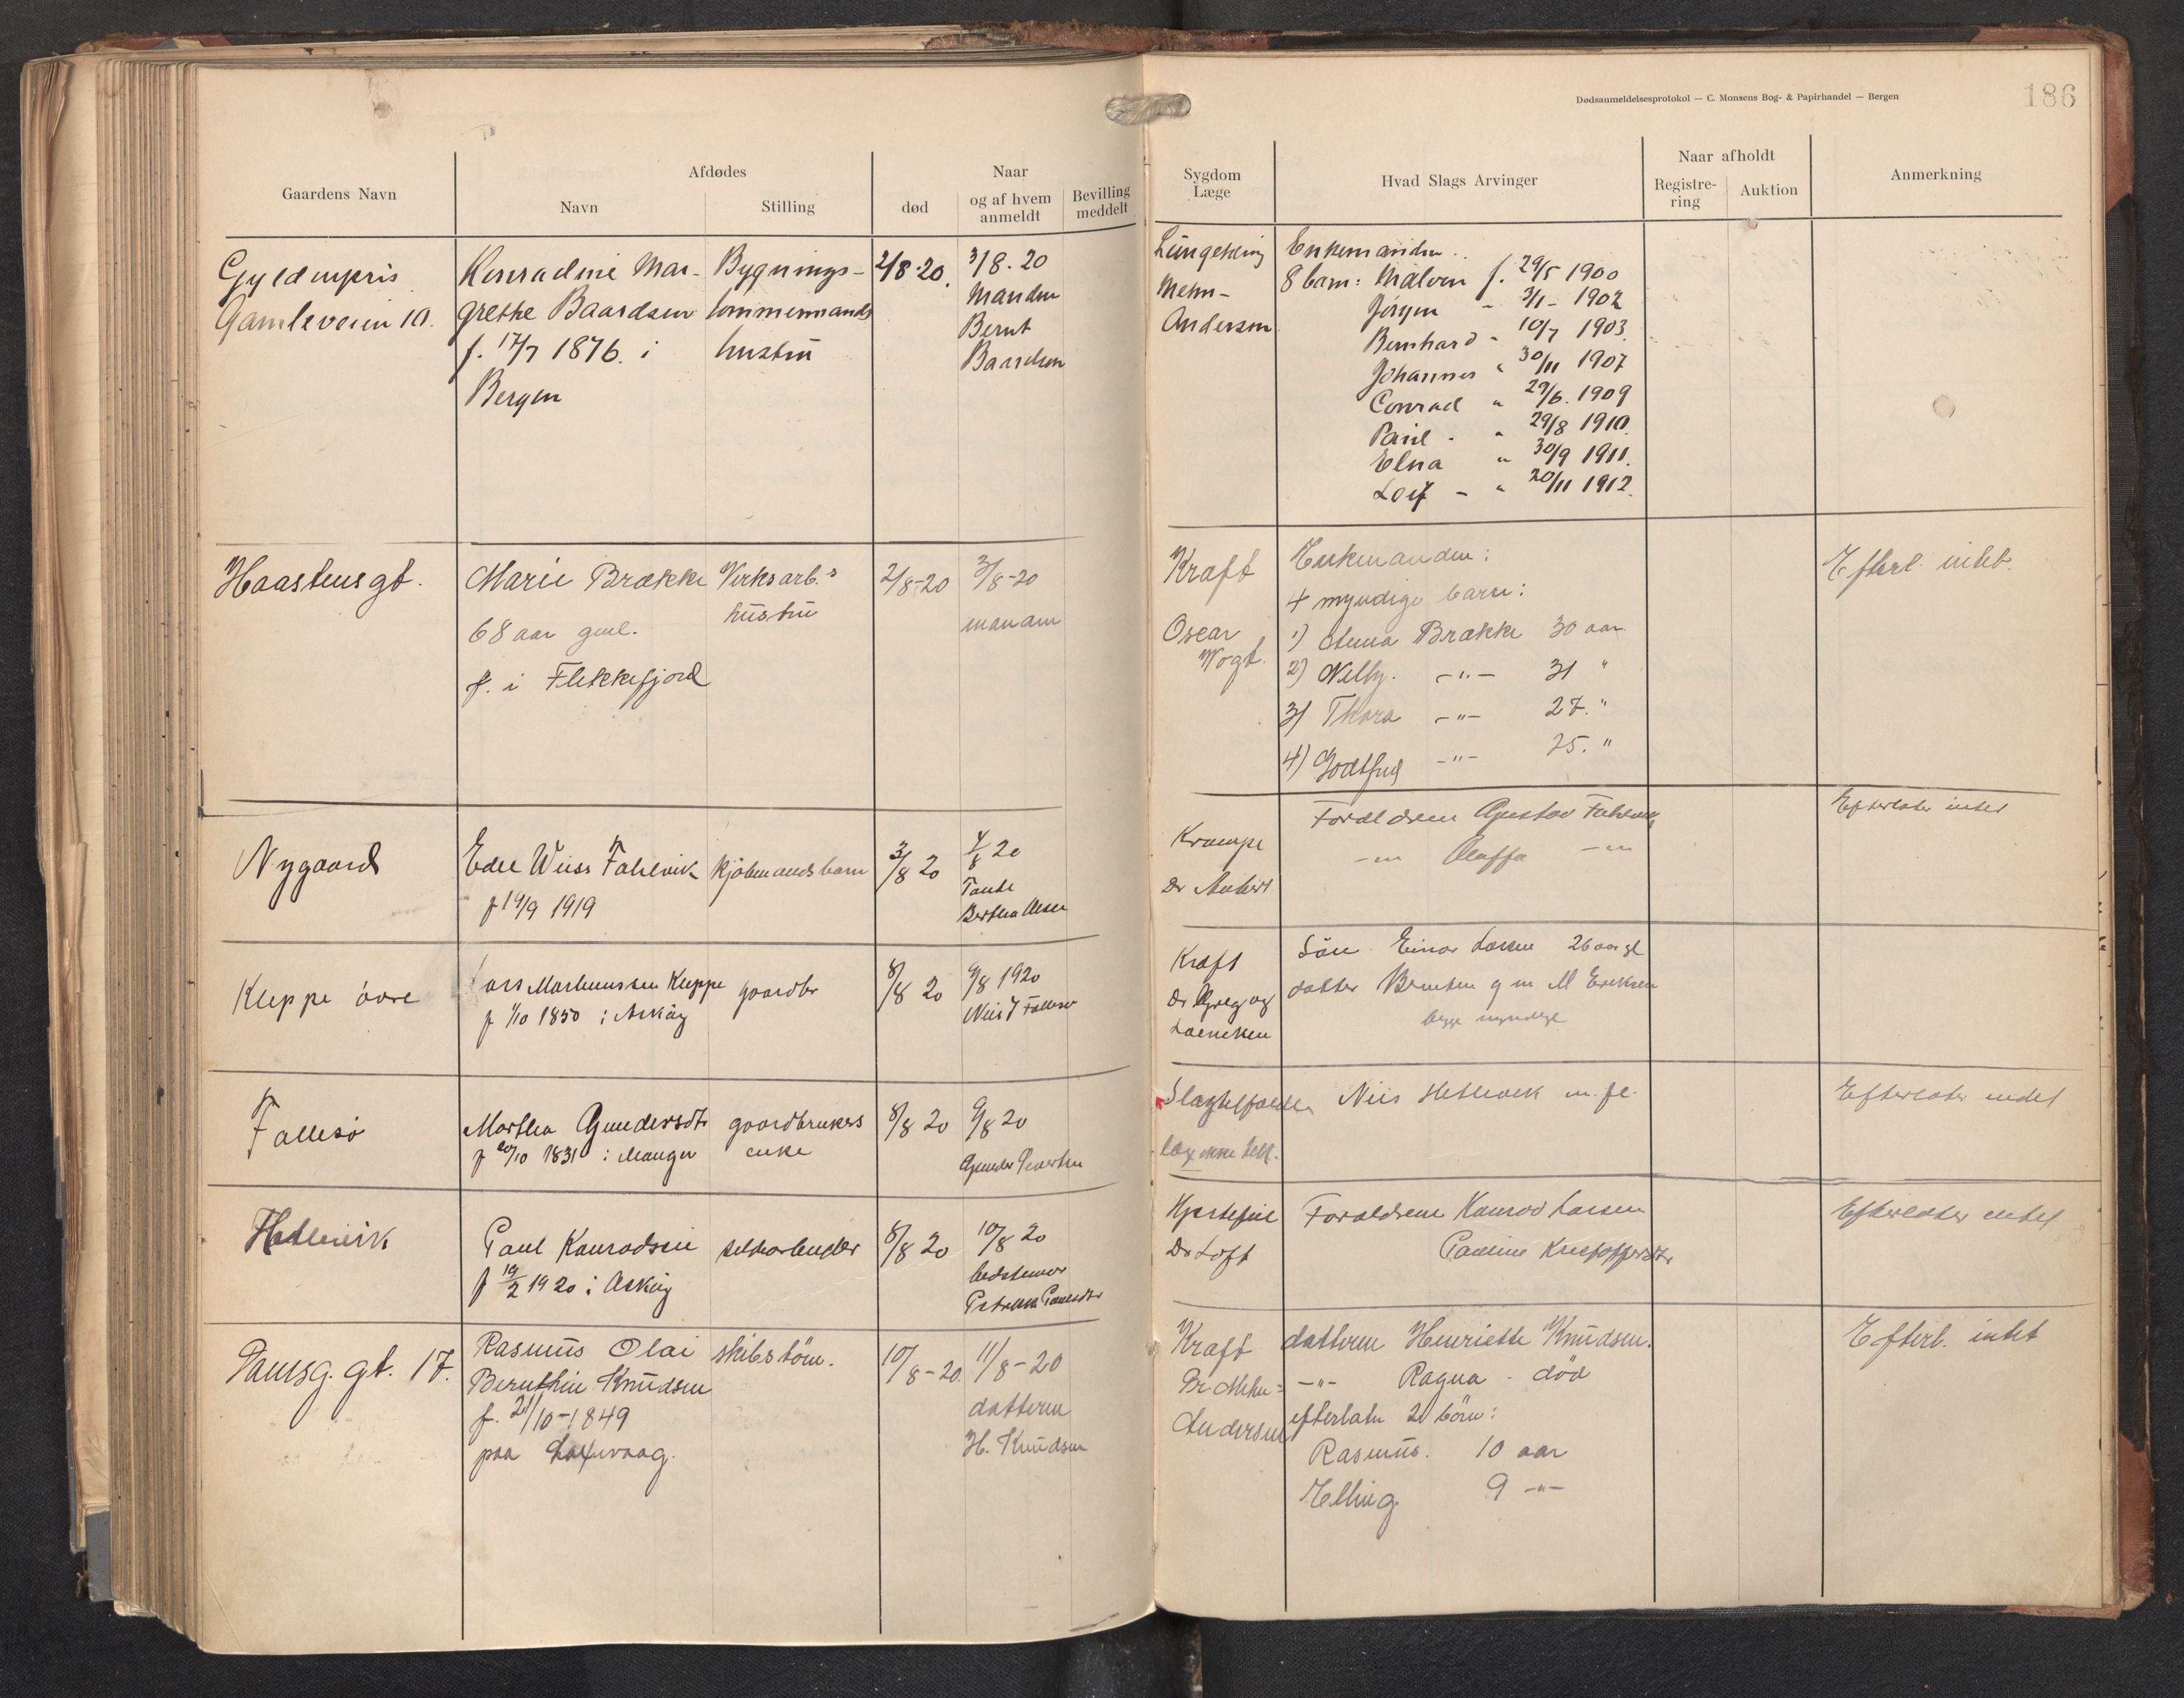 Dødsanmeldelsesprotokol — C. Monsens Bog- & Papirhandel — Bergen
186
Gaardens Navn
Afdødes
Navn
Stilling
Naar
død
og af hvem anmeldt
Bevilling meddelt
Sygdom
Læge
Hvad Slags Arvinger
Naar afholdt
Registre-
ring
Auktion
Anmerkning
Gyldenpris
Gamleveien 10.
Konradine Mar-
grethe Baardsen
f. 17/7 1876. i
Bergen
Bygnings-
tømmermands
hustru
2/8.20.
3/8.20
Manden
Bernt
Baardsen
Mehn-
Andersen
Enkemanden
8 barn: Malvin f. 29/5 1900
Jørgen " 3/1 - 1902
Bernhard " 10/7 1903.
Johannes " 30/11 1907
Conrad " 29/6. 1909
Paul " 29/8 1910.
Elna " 30/9 1911.
Leif - " 20/11 1912.
Haastensgt.
Marie Brække
68 aar gml.
f. i Flekkefjord
Verksarb.s
hustru
2/8-20
3/8-20
Kraft
Oscar
Vogt.
Enkemanden:
4 myndige barn:
1) Anna Brække 30 aar
2) Nelly. -"- 31 "
3) Thora -"- 27. "
4) Godtfred -"- 25. "
Efterl. intet.
Nygaard
Edel Weiss Fahlvik
f 19/9 1919
kjöbmandsbarn
3/8 20
4/8 20
Tante
Bertha Olsen
Krampe
Dr
Foræl drene Gustav Fahlvik
-"- Olaffa -"-
Efterlater intet
Kleppe övre
Lars Martinussen Kleppe
f 1/10 1850 i Asköy
gaardbr
8/8 20
9/8 1920
Kraft
Dr Greg og
Sön Einar Larsen 26 aar gl
datter g m M Eriksen
begge myndige
Follesö
Martha Gundersdtr
f 20/10 1831 i Manger
gaardbrukers
enke
8/8 20
9/8 20
Nils Hetlevik m. fl.
Efterlater intet
Hetlevik
Paul Konradsen
f 19/2 1920 i Asköy
8/8 20
10/8 20
bedstemor
Petrina Paulsdtr
Hjertefeil
Dr Loft
Forældrene Konrad Larsen
Pauline Kristoffersdtr
Efterlater intet
Damsg. gt. 17.
Rasmus Olai
Bernthin Knudsen
f. 21/10-1849
paa Laxevaag.
skibstöm.
10/8-20.
11/8-20
datteren
H. Knudsen
Kraft
Dr Mehn-
Andersen
datteren Henriette Knudsen.
-"- Ragna - død
efterlatn 2 börn:
Rasmus. 10 aar
Elling. 9 -"-
Efterl. intet